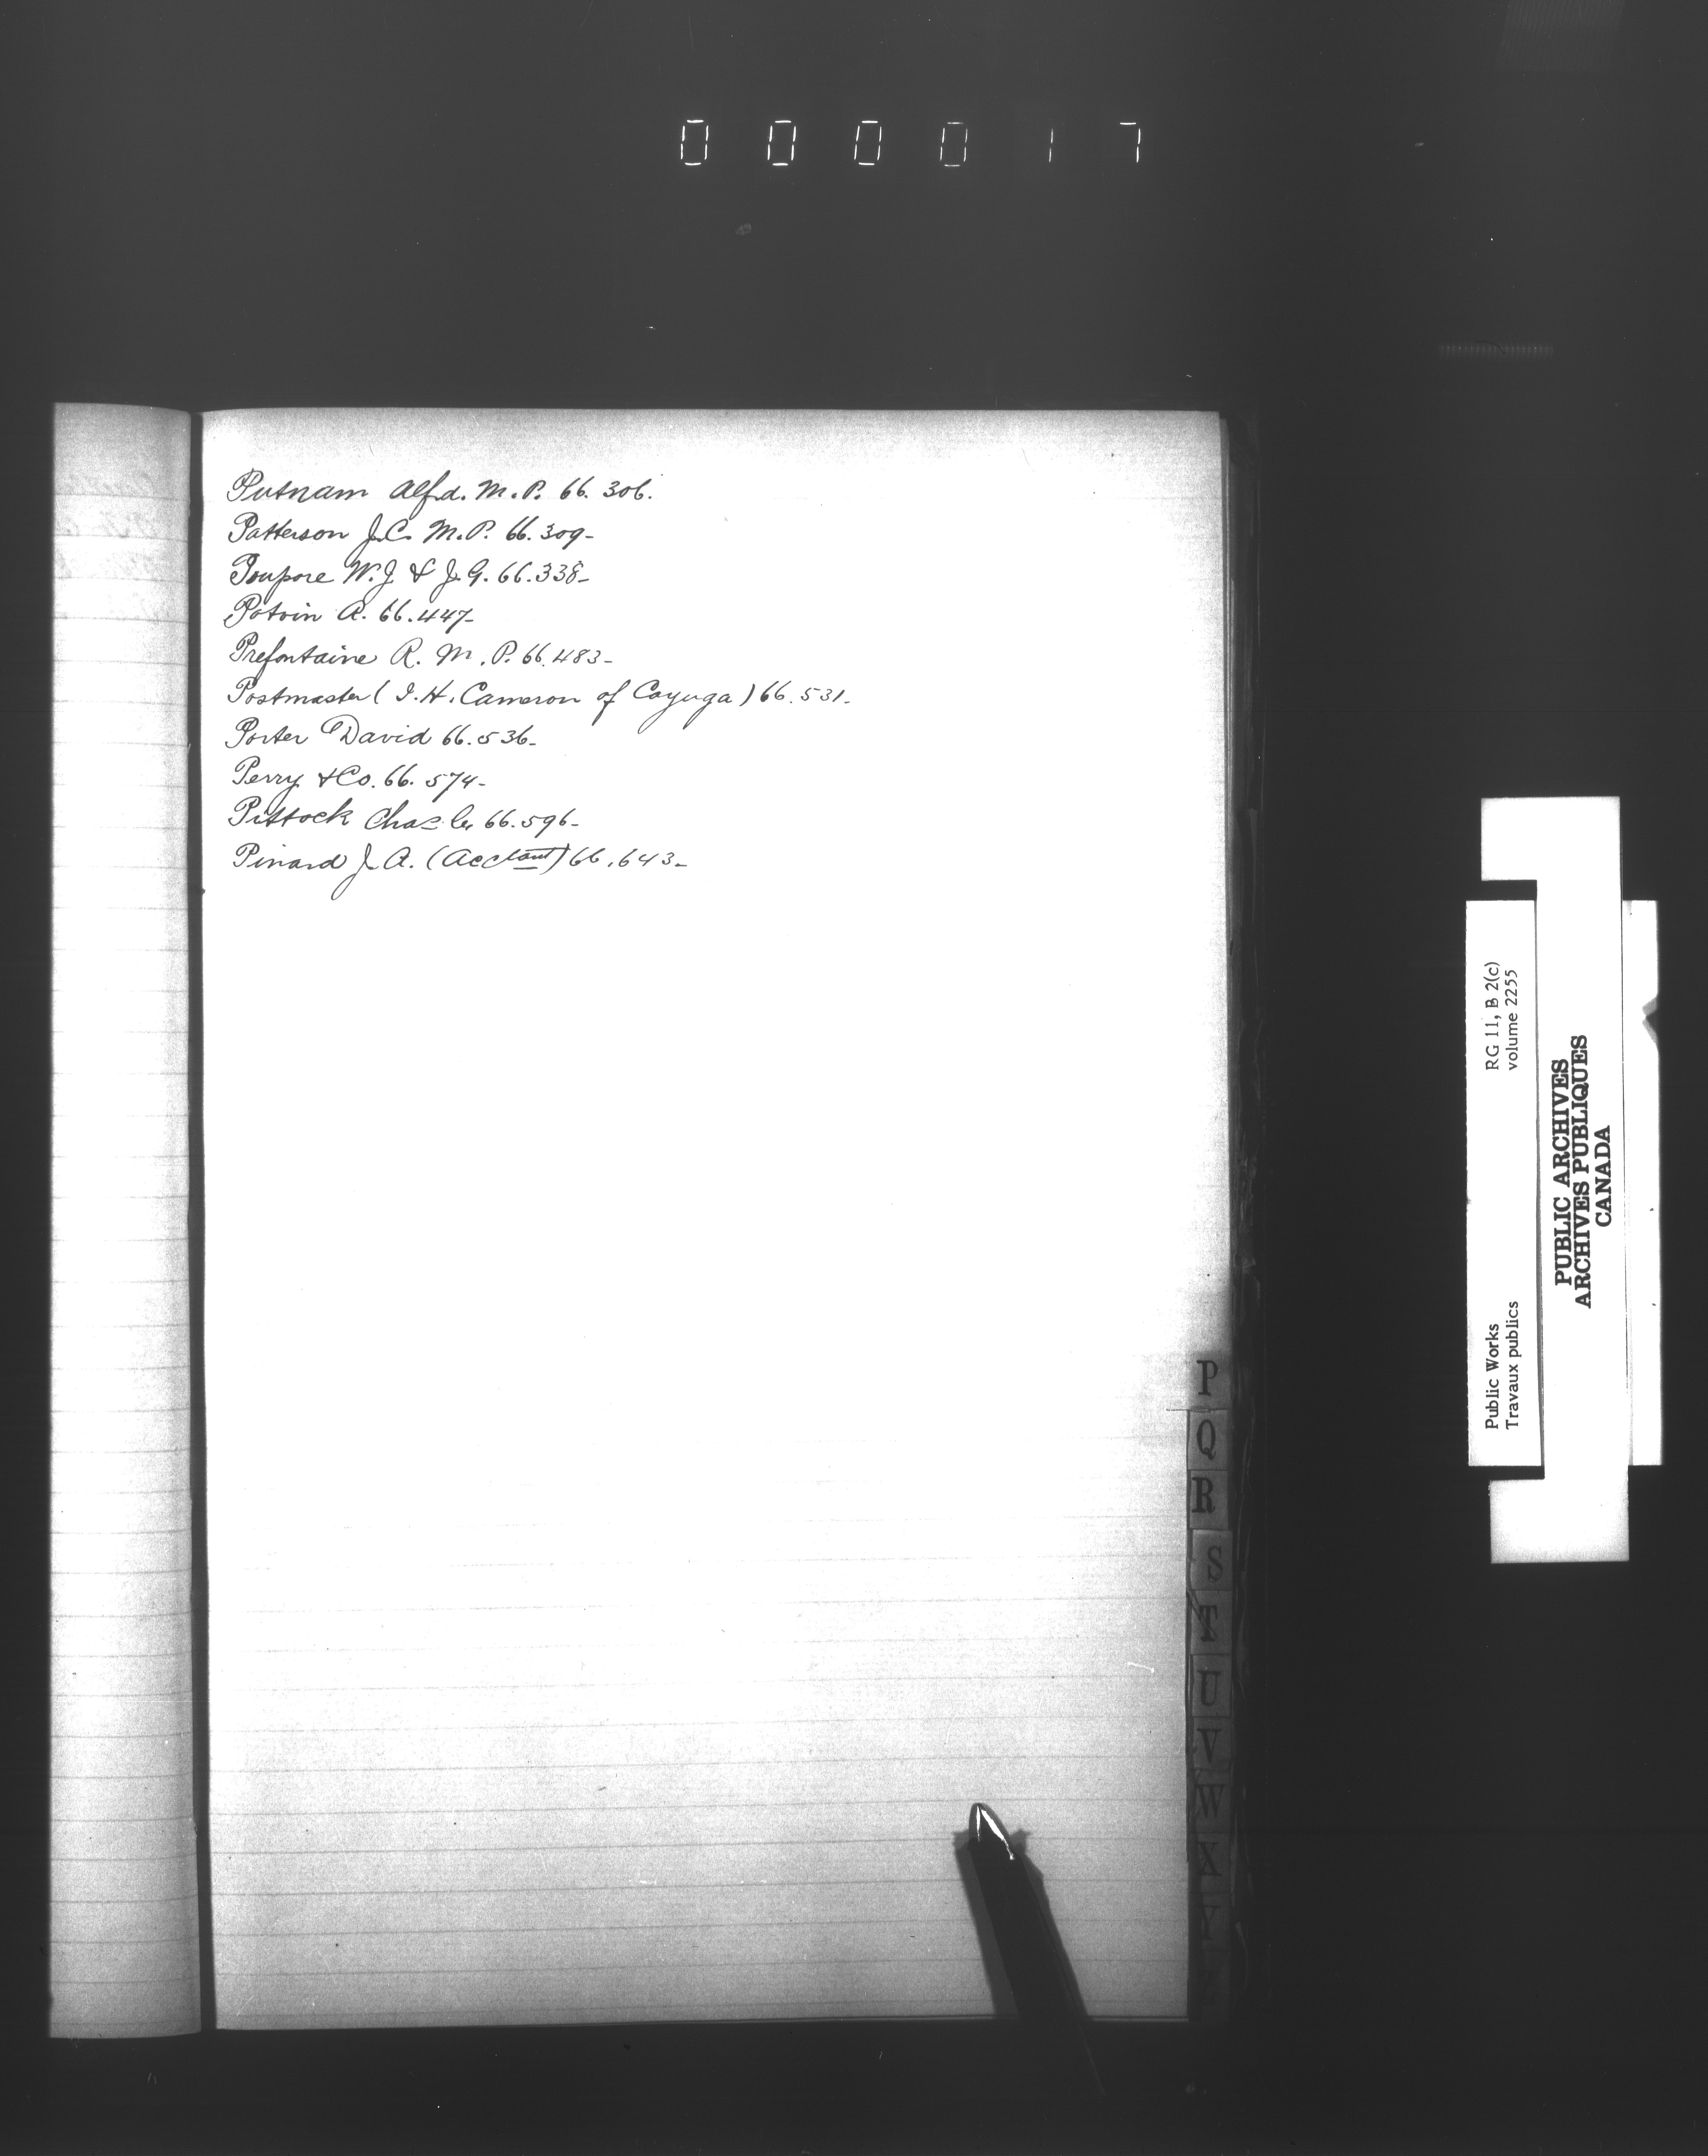 000017
Putnam Alfd. M.P. 66. 306.
Patterson J.C. M.P. 66.309-
Poupore W.J & J.G. 66.338-
Potvin A. 66.447-
Prefontaine R. M.P. 66.483-
Postmaster ( I.H. Cameron of Cayuga ) 66.531.
Porter David 66.536-
Perry & Co. 66. 574-
Pittock Chas 66.596-
Pinard J.A. (Acctant) 66.643-
P
Q
R
S
T
U
V
W
X
Y
Public Works
Travaux publics
RG 11, B 2(c)
volume 2255
PUBLIC ARCHIVES
ARCHIVES PUBLIQUES
CANADA